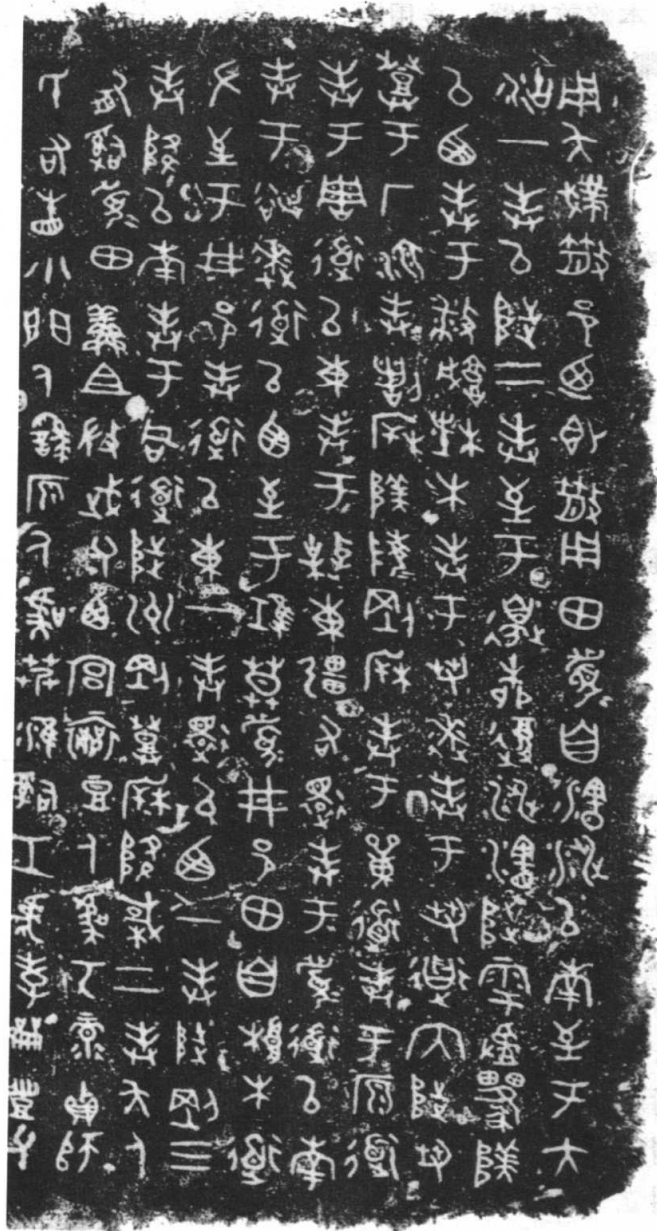 用夨𢦚散邑乃即散用田眉自瀗涉以南至于大
沽一封以陟二封至于邊柳復涉瀗陟雩
以西封于敝城楮木封于芻逨封于芻道内陟芻
登于厂湶封剖𣐺陵剛𣐺封于單道封于原道
封于周道以東封于東彊右還封于眉道以南
封于逨道以西至于莫眉井邑田自根木道
左至于井邑封道以東一封還以西一封陟剛三
封降以南封于同道陟州剛登𣐺降棫二封夨人
有司眉田鮮且微武父西宮襄豆人虞丂彔貞師
氏右眚小門人繇原人虞艿淮司工虎孝豐父